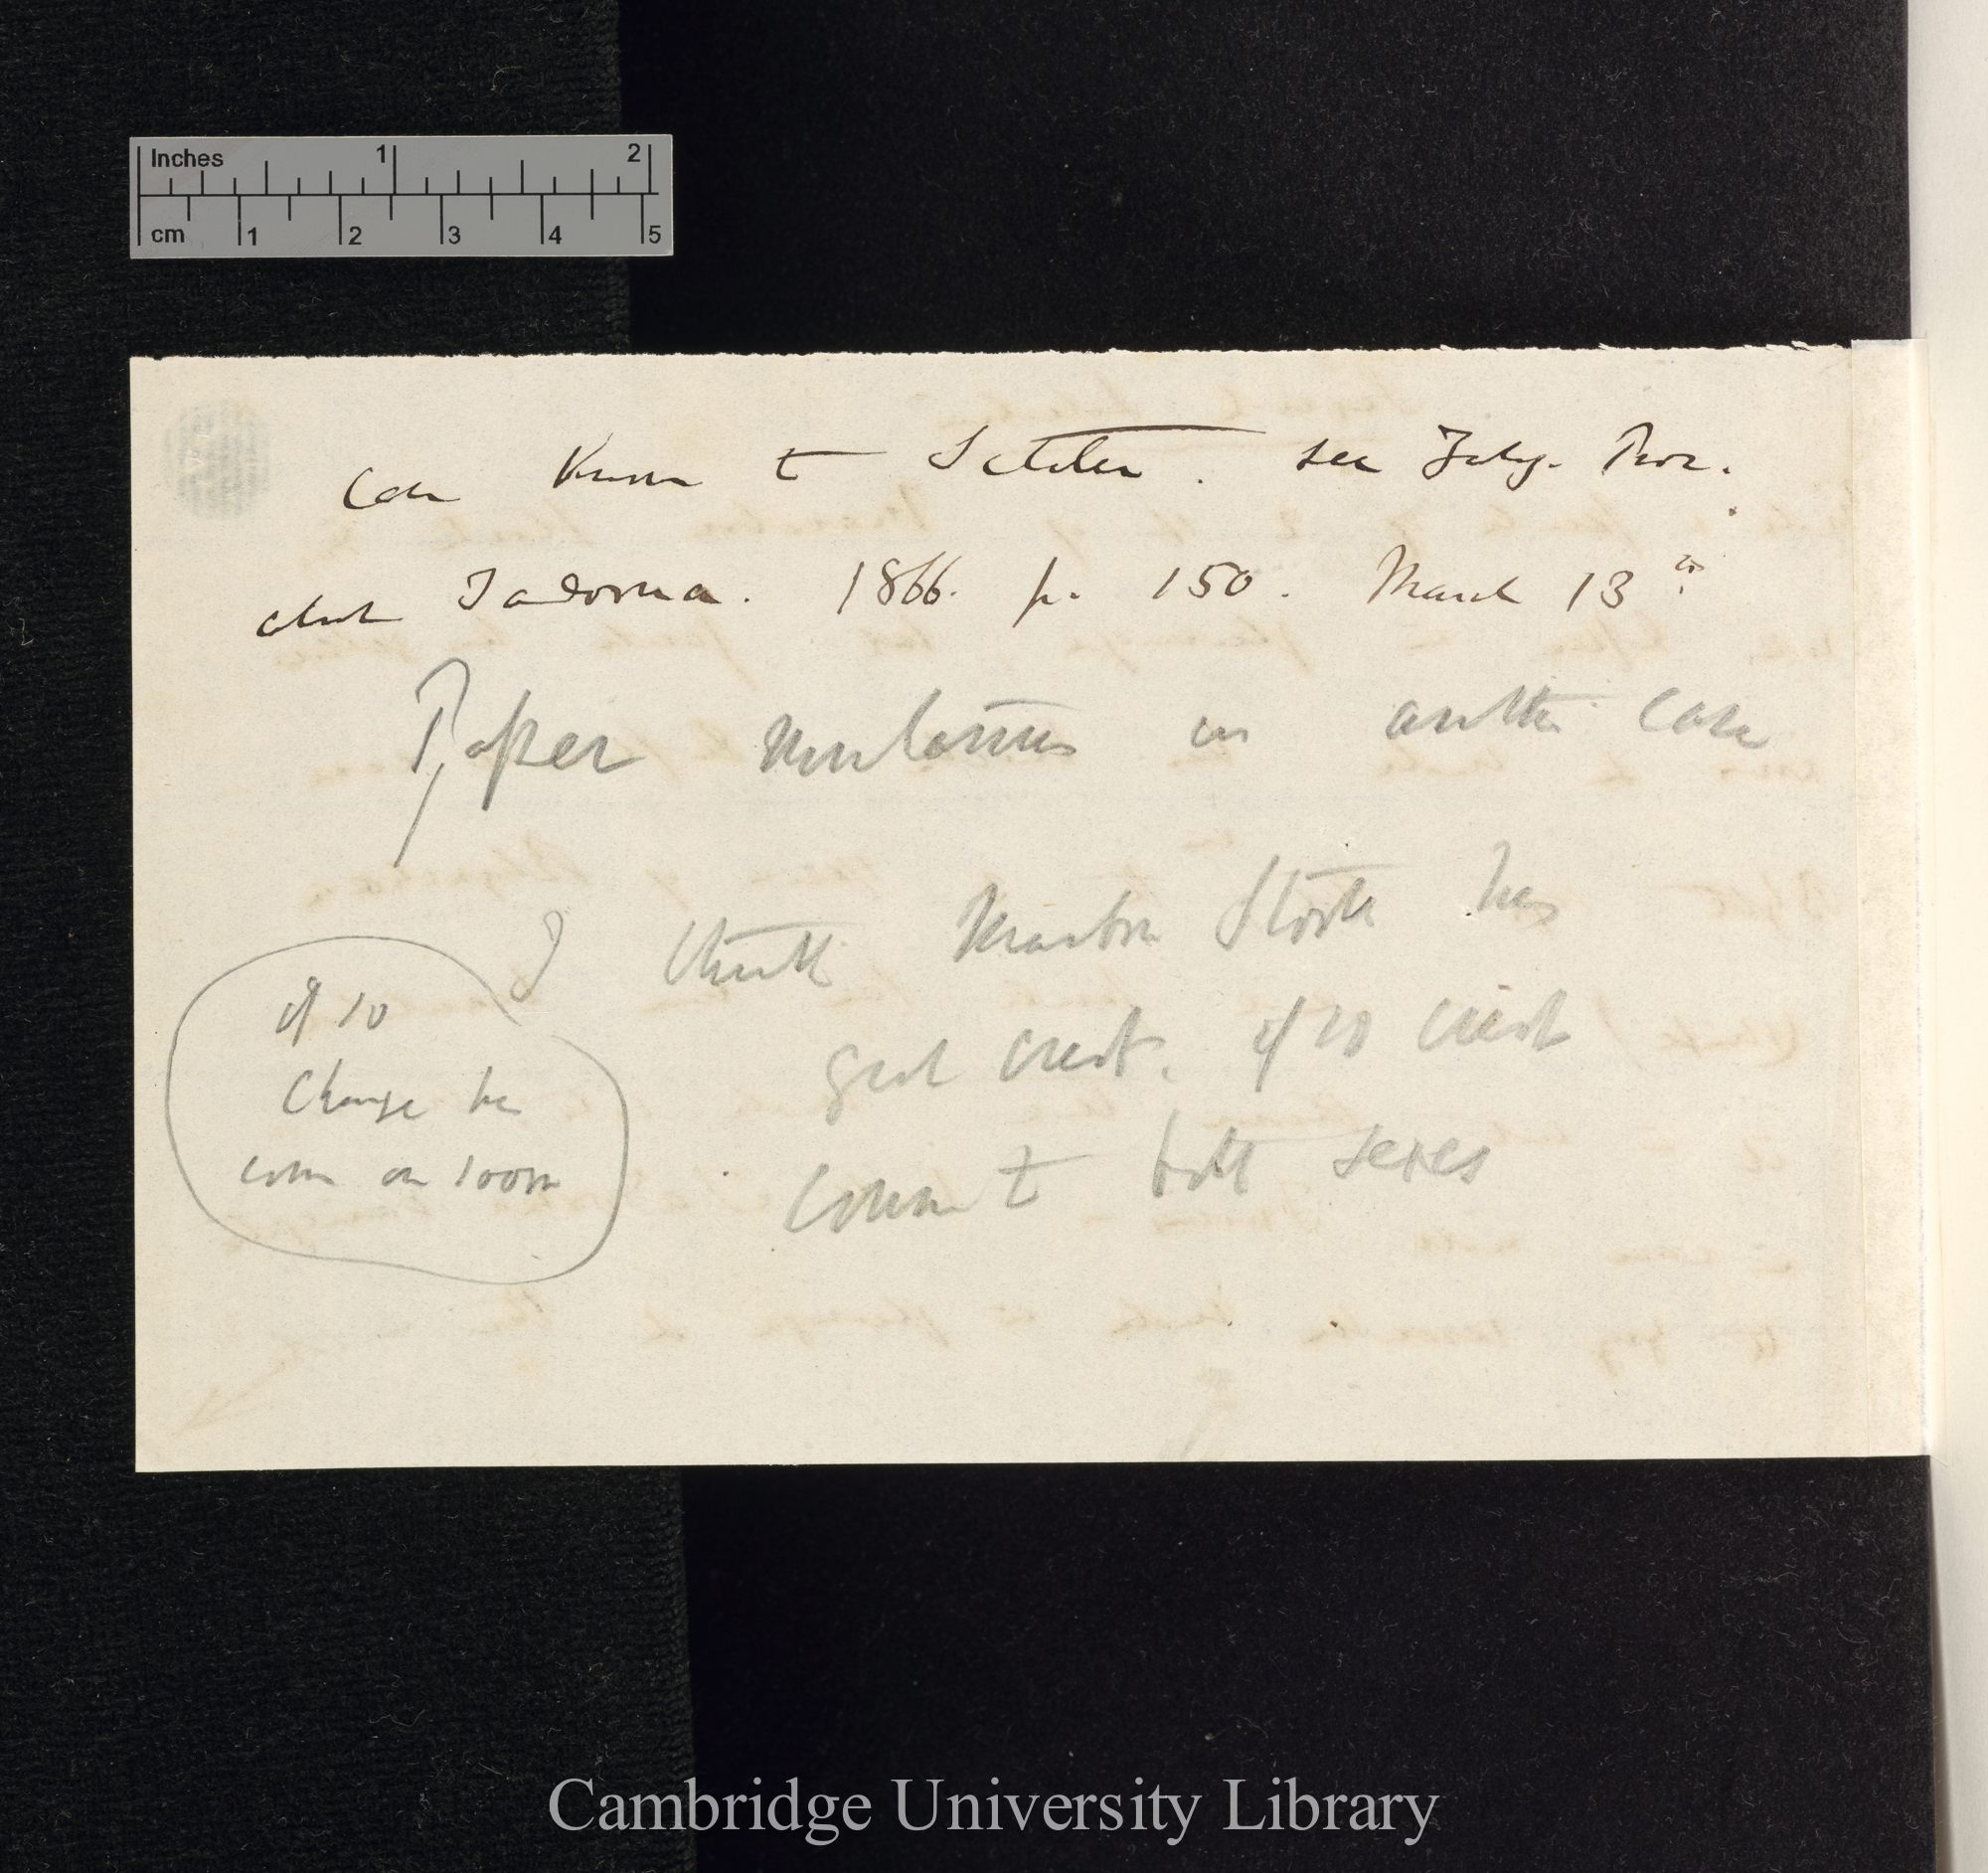 Inches 1 2
cm 1 2 3 4 5
Case known to Sclater. see Zoolog. Proc.
about Tadorna. 1866. p. 150. March 13th
Paper mentions in another case
I think Marabou Stork has
great crest. if so crest
common to both sexes
if so
Change he
come on soon
Cambridge University Library